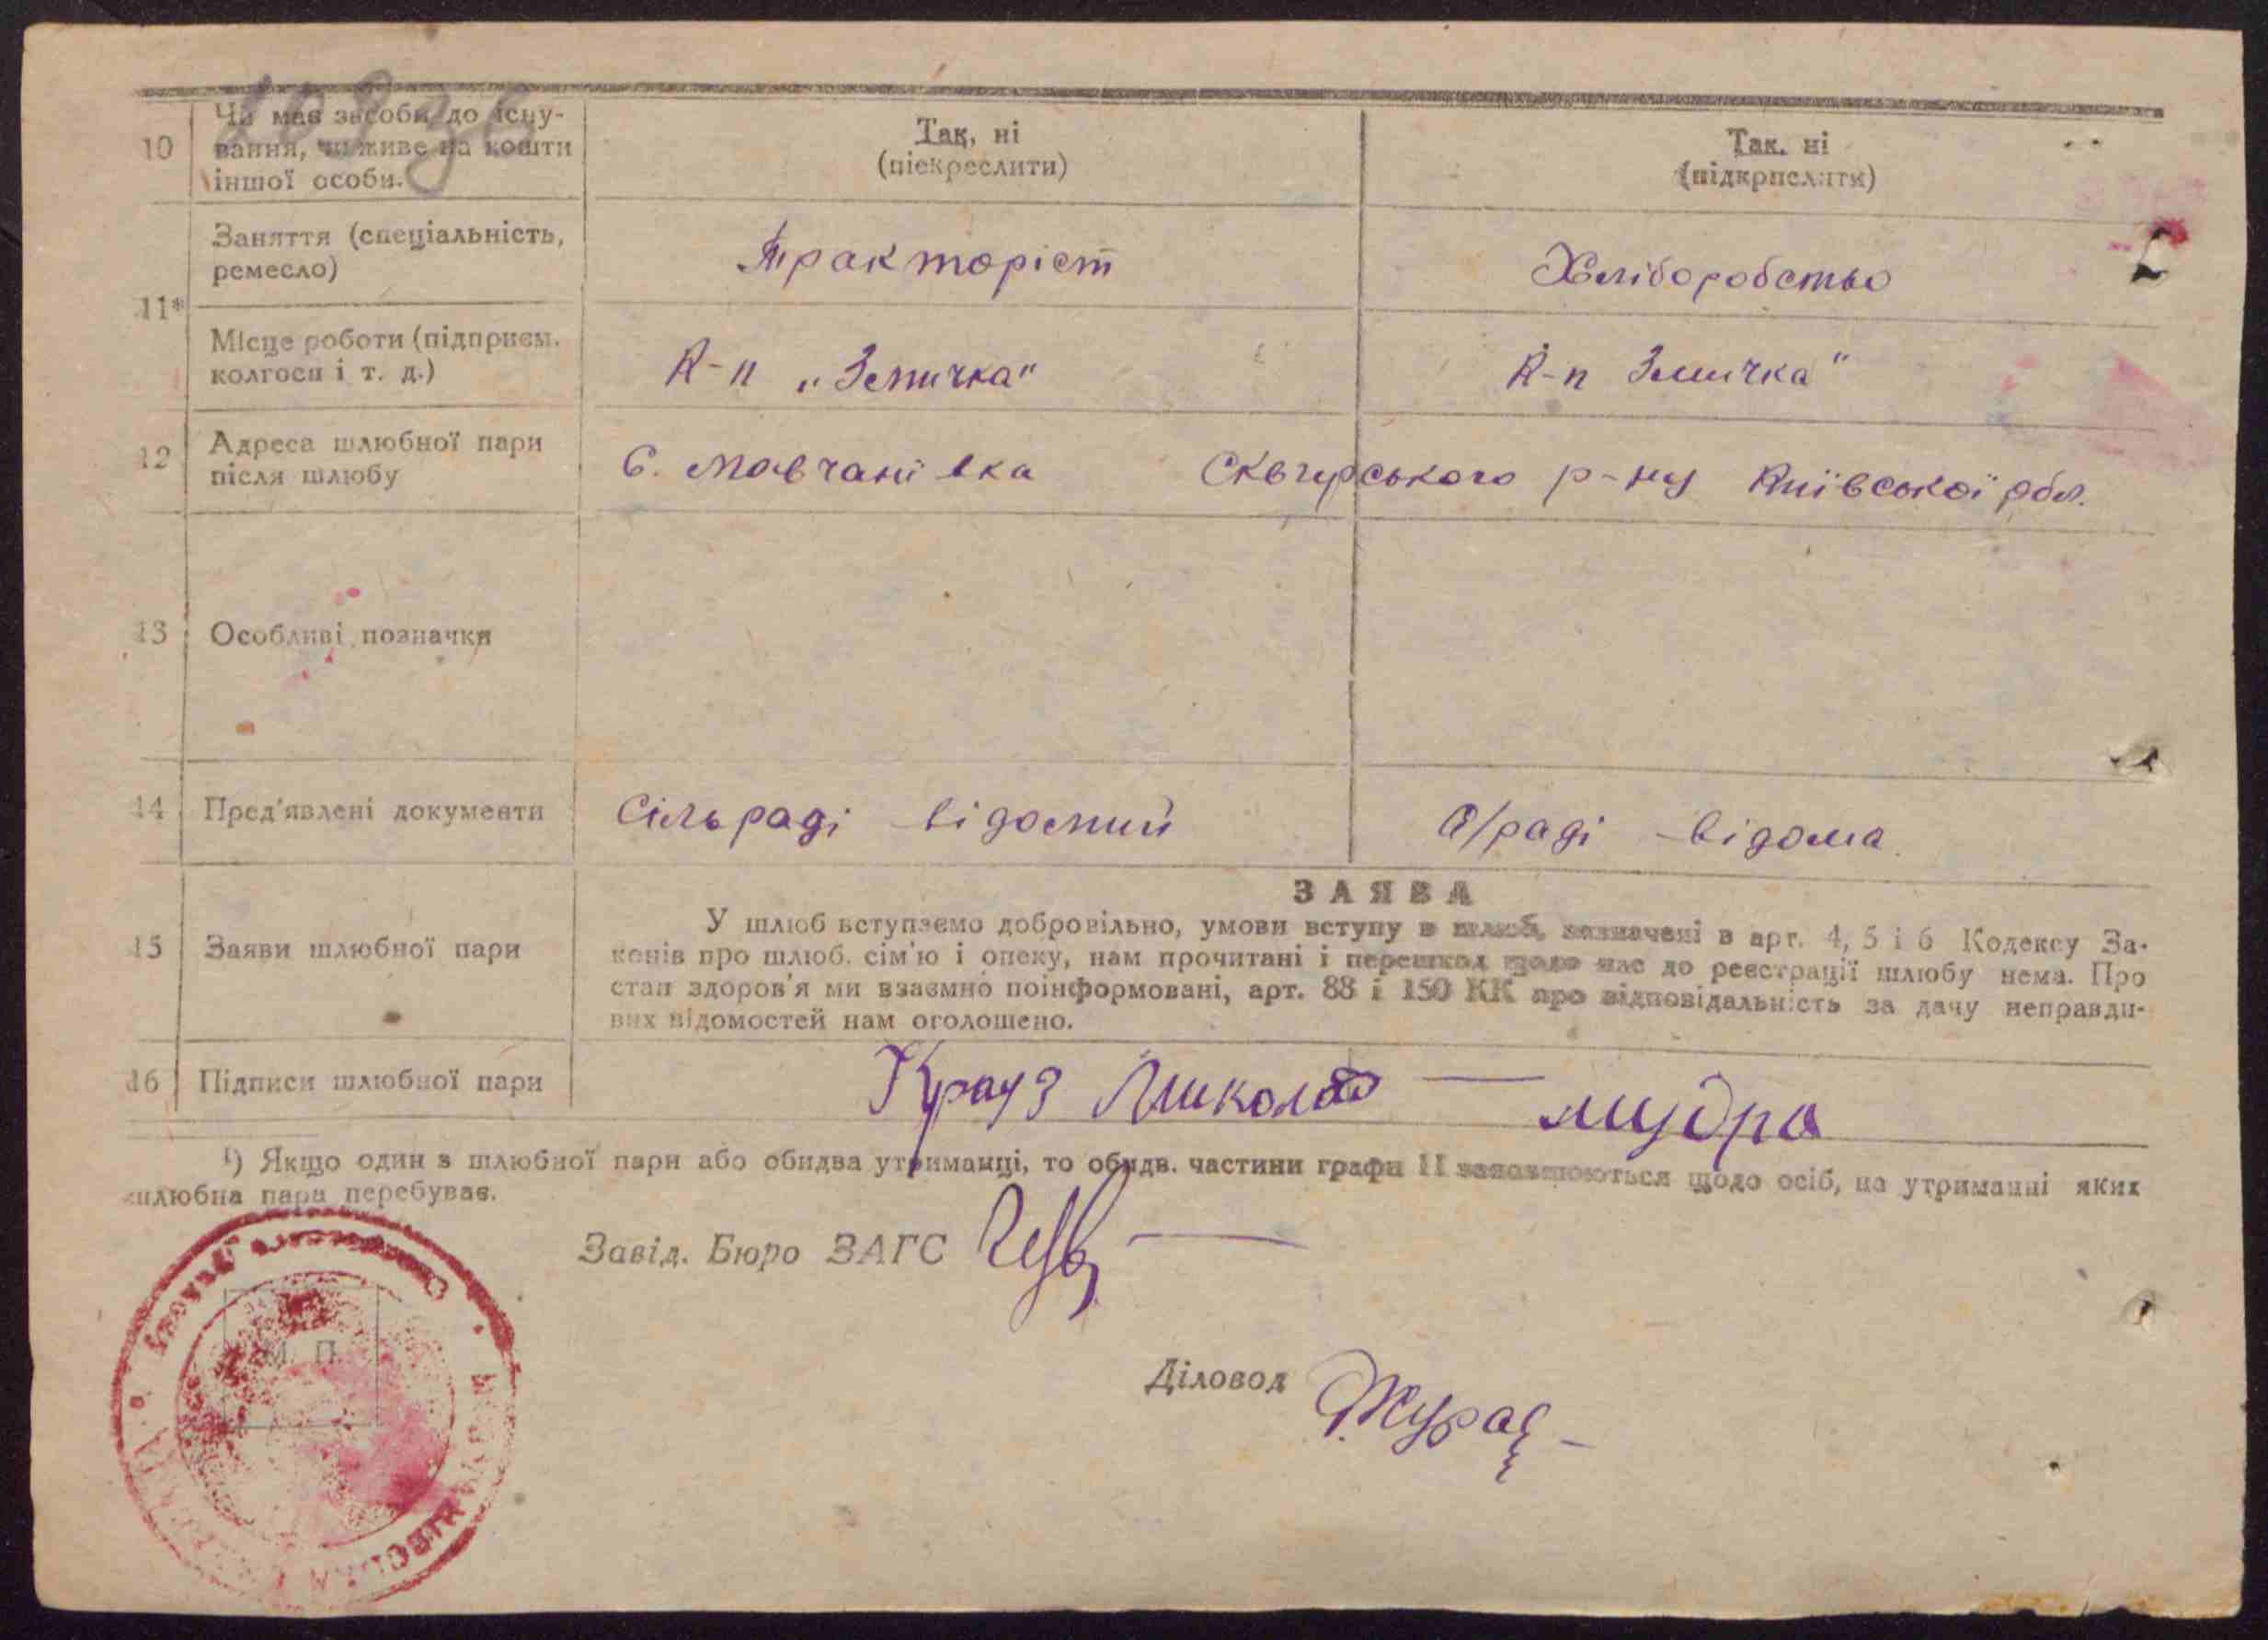 10 Чи має засоби до існу- Так, ні Так. ні
вання, чи живе на кошти (піекреслити) (підкрислити)
іншої особи.
11* Заняття (спеціальність, Тракторіст Хліборобство
ремесло)
Місце роботи (підприєм. К-п „Змичка" К-п Змичка"
колгосп і т. д.)
12 Адреса шлюбної пари С. Мовчанівка Сквирського р-ну Київської обл.
після шлюбу
13 Особливі позначки
14 Пред'явлені документи Сільраді відомий С/раді відома
ЗАЯВА
15 Заяви шлюбної пари У шлюб вступаємо добровільно, умови вступу в шлюб, зазначені в арт. 4, 5 і 6 Кодексу За-
конів про шлюб. сім'ю і опеку, нам прочитані і перешкод щодо нас до реєстрації шлюбу нема. Про
стан здоров'я ми взаємно поінформовані, арт. 88 і 150 КК про відповідальність за дачу неправди-
вих відомостей нам оголошено.
16 Підписи шлюбної пари Крауз Микола — Мудра
¹) Якщо один з шлюбної пари або обидва утриманці, то обидв. частини графи 11 заповнюються щодо осіб, на утриманні яких
шлюбна пара перебуває.
Завід. Бюро ЗАГС
М. П.
Діловод